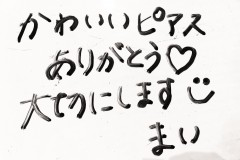 かわいいピアス
ありがとう♡
大切にします☺
まい